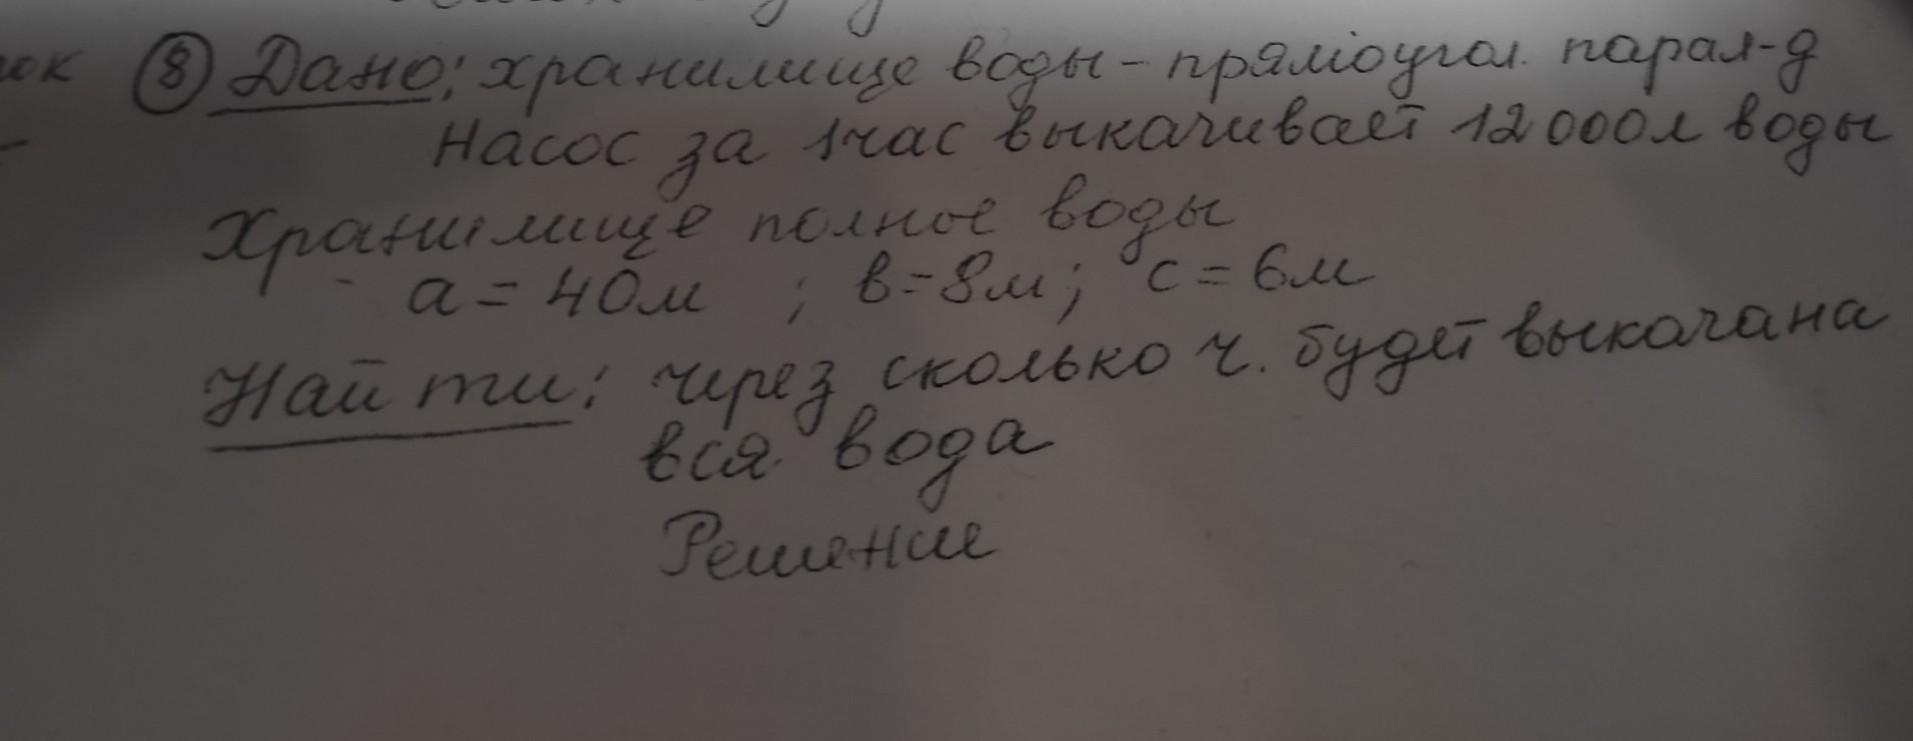 ок ⑧ Дано: хранилище воды - прямоугол. парал-д
Насос за 1час выкачивает 12000л воды
Хранилище полное воды
а = 40м ; в=8м; с = 6м
Найти: через сколько ч. будет выкачана
вся вода
Решение